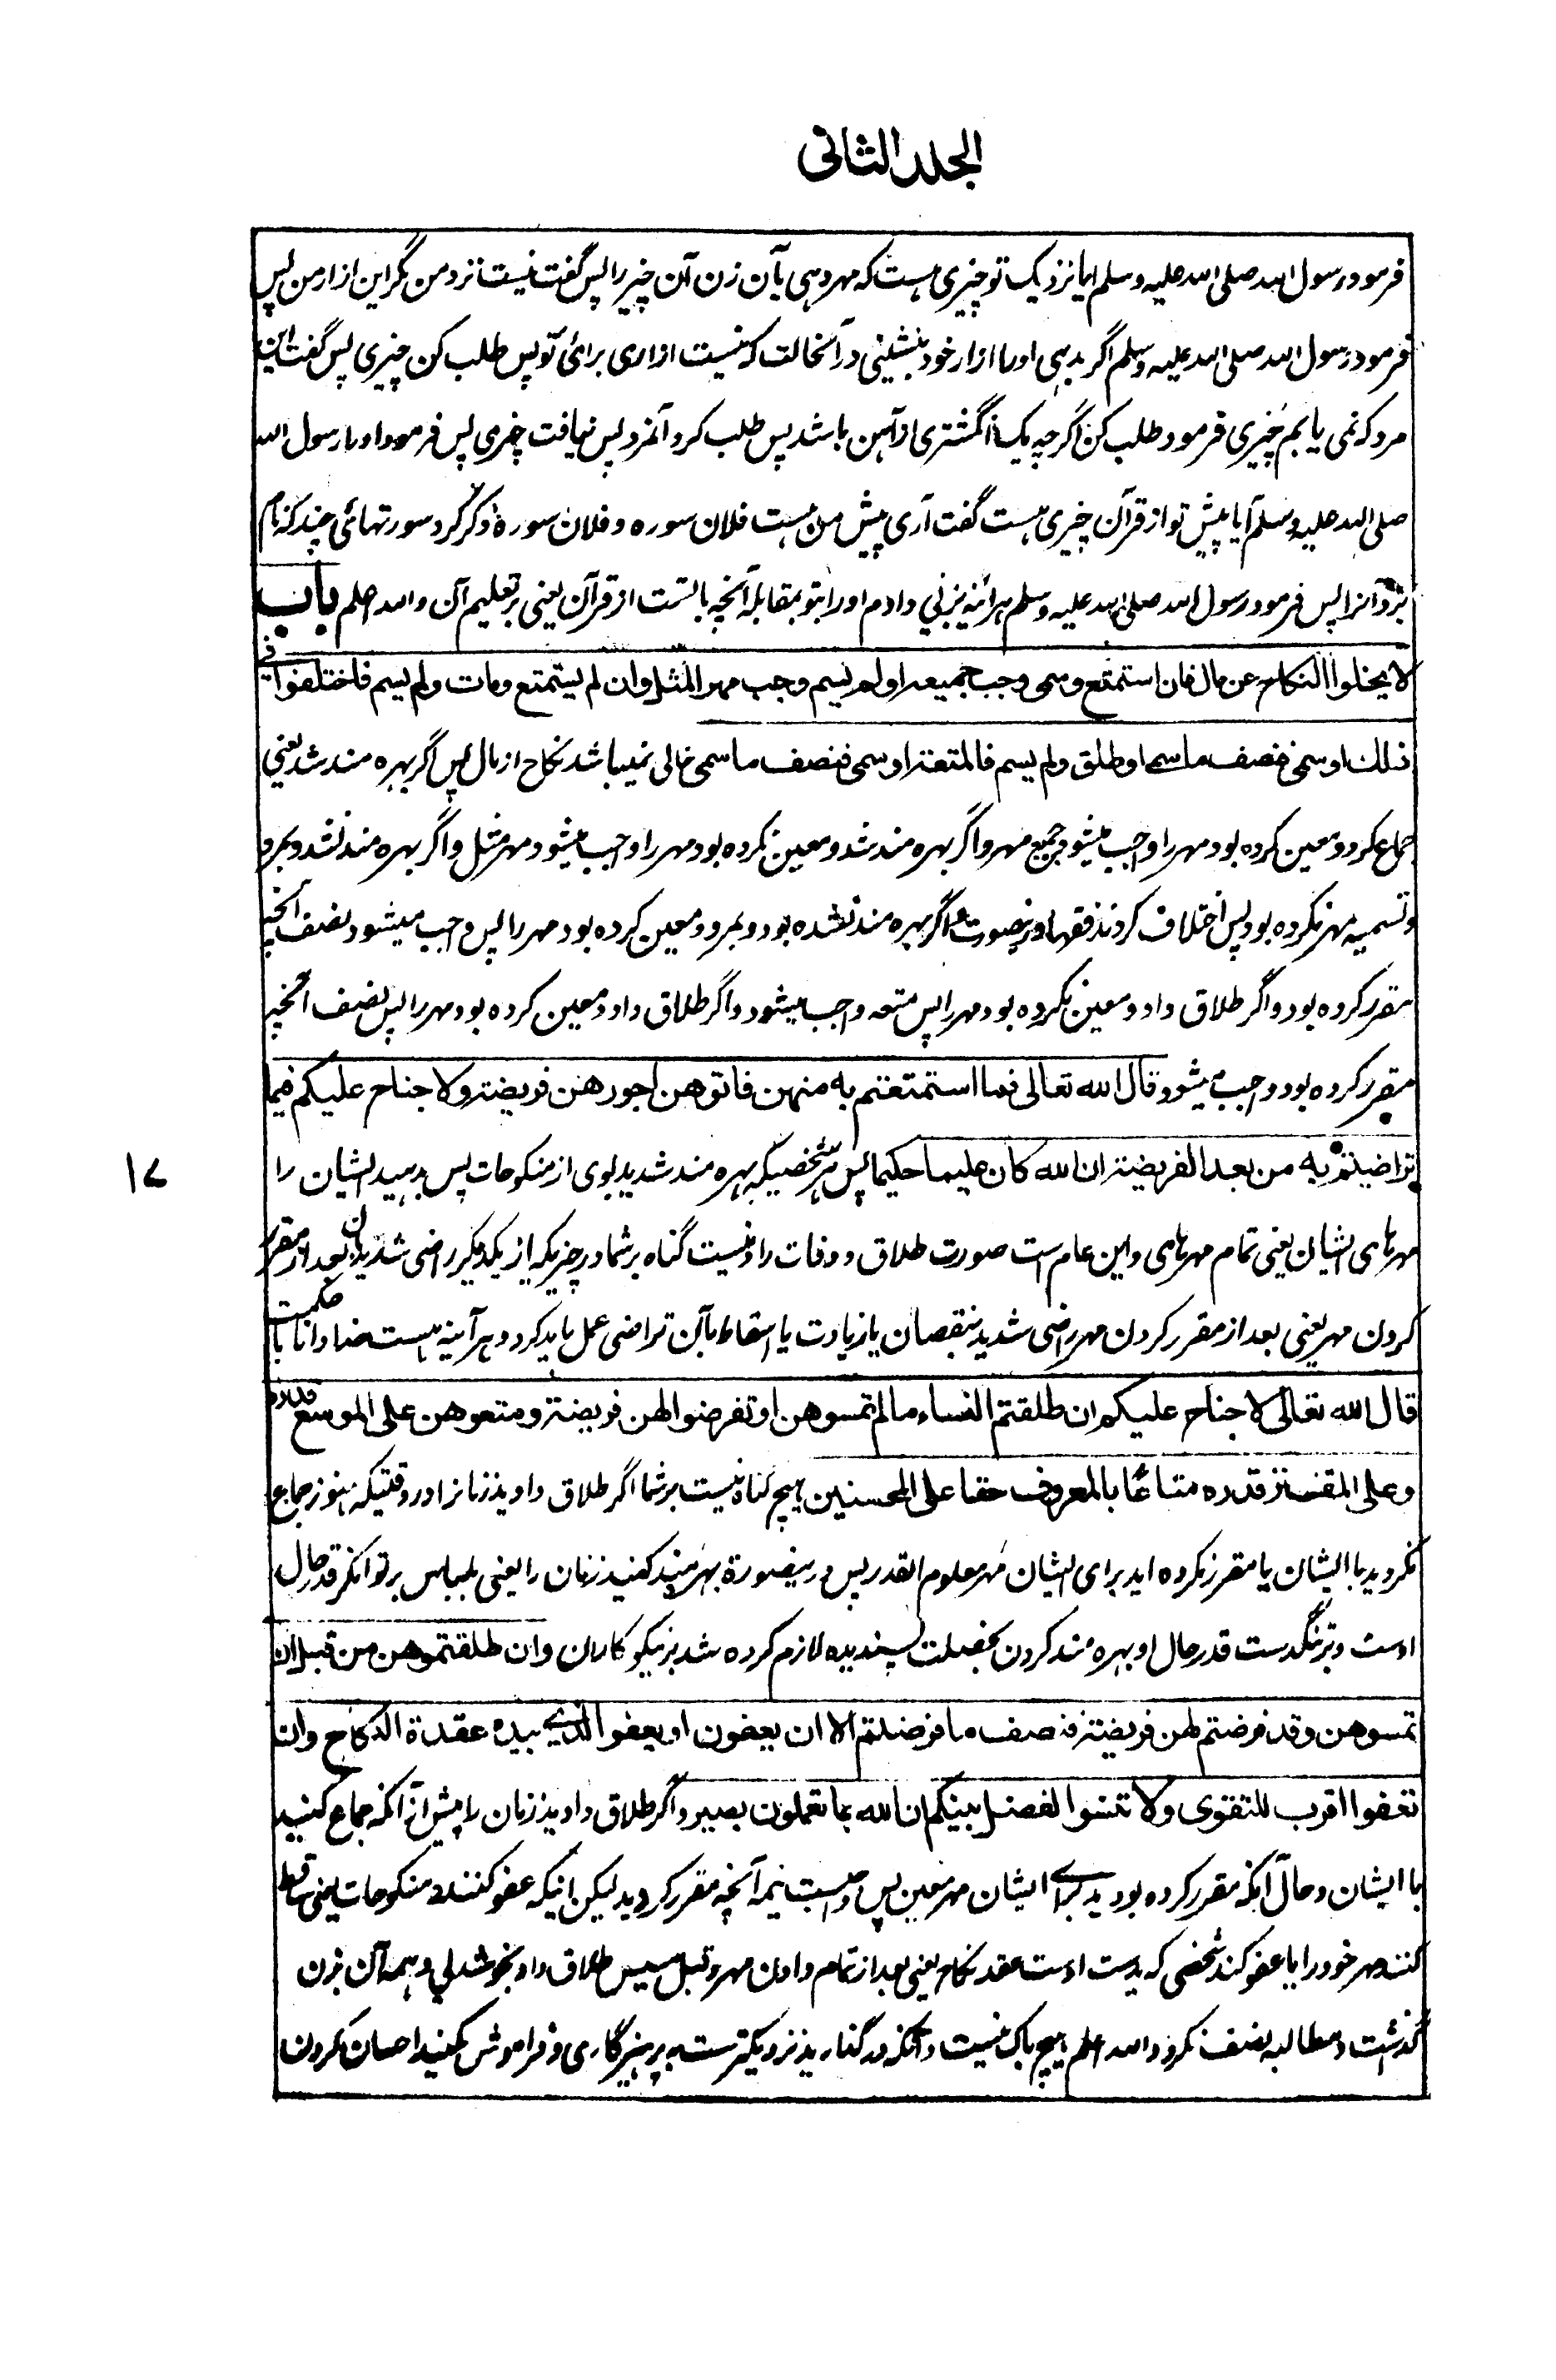 الجلد الثانی
فرمود رسول الله صلی الله علیه وسلم ایا نزدیک تو چیزی هست که مهر دهی بآن زن آن چیز را پس گفت نیست نزد من مگر این ازار من پس
فرمود رسول الله صلی الله علیه وسلم اگر بدهی اورا ازار خود بنشینی در آنحالت که نیست ازاری برای تو پس طلب کن چیزی پس گفت این
مرد که نمی یابم چیزی فرمود طلب کن اگرچه یک انگشتری از آهن باشد پس طلب کرد آنمرد پس نیافت چیزی پس فرمود اورا رسول الله
صلی الله علیه وسلم آیا پیش تو از قرآن چیزی هست گفت آری پیش من هست فلان سوره و فلان سوره ذکر کرد سورتهائی چند که نام
برد آنرا پس فرمود رسول الله صلی الله علیه وسلم هرآئنه بزنی دادم اورا بتو بمقابله آنچه با تست از قرآن یعنی بر تعلیم آن والله اعلم باب
لا یخلوا النکاح عن مال فان استمتع وسمی وجب جمیعه اولم یسم وجب مهر المثل وان لم یستمتع ومات ولم یسم فاختلفوا فی
ذلك او سمی فنصف ما سمی او طلق ولم یسم فالمتعة او سمی فنصف ما سمی خالی نمیباشد نکاح از مال پس اگر بهره مند شد یعنی
جماع کرد و معین کرده بود مهر را واجب میشود جمیع مهر و اگر بهره مند شد و معین نکرده بود مهر را واجب میشود مهر مثل و اگر بهره مند نشد و بمرد
و تسمیه مهر نکرده بود پس اختلاف کردند فقها درینصورت و اگر بهره مند نشده بود و بمرد و معین کرده بود مهر را پس واجب میشود نصف آنچه
مقرر کرده بود و اگر طلاق داد و معین نکرده بود مهر را پس متعه واجب میشود و اگر طلاق داد و معین کرده بود مهر را پس نصف آنچه
مقرر کرده بود واجب میشود قال الله تعالی فما استمتعتم به منهن فاتوهن اجورهن فریضة ولا جناح علیکم فیما
تراضیتم به من بعد الفریضة ان الله کان علیما حکیما پس هر شخصیکه بهره مند شدید بوی از منکوحات پس بدهید ایشان را
مهرهای ایشان یعنی تمام مهرهای واین عام ست صورت طلاق و وفات را و نیست گناه بر شما در چیزیکه از یکدیگر راضی شدید بآن بعد از مقرر
کردن مهر یعنی بعد از مقرر کردن مهر راضی شدید بنقصان یا زیادت یا اسقاط بآن تراضی عمل باید کرد و هرآینه هست خدا دانا با حکمت
قال الله تعالی لا جناح علیکم ان طلقتم النساء ما لم تمسوهن او تفرضوا لهن فریضة ومتعوهن علی الموسع قدره
وعلی المقتر قدره متاعًا بالمعروف حقا علی المحسنین هیچ گناه نیست بر شما اگر طلاق دادید زنانرا در وقتیکه هنوز جماع
نکردید با ایشان یا مقرر نکرده اید برای ایشان مهر معلوم القدر پس درینصورة بهره مند کنید زنان را یعنی بلباس بر توانگر قدر حال
اوست و بر تنگدست قدر حال او بهره مند کردن بخصلت پسندیده لازم کرده شد بر نیکو کاران وان طلقتموهن من قبل ان
تمسوهن وقد فرضتم لهن فریضة فنصف ما فرضتم الا ان یعفون او یعفوا الذی بیده عقدة النکاح وان
تعفوا اقرب للتقوی ولا تنسوا الفضل بینکم ان الله بما تعملون بصیر و اگر طلاق دادید زنان را پیش از آنکه جماع کنید
با ایشان و حال آنکه مقرر کرده بودید برای ایشان مهر معین پس واجبست نیمه آنچه مقرر کردید لیکن اینکه عفو کنند منکوحات یعنی ساقط
کنند مهر خود را یا عفو کند شخصی که بدست اوست عقد نکاح یعنی بعد از تمام دادن مهر و قبل مسیس طلاق داد بخوشدلی و همه آن بزن
گذشت و مطالبه نصف نکرد والله اعلم هیچ باک نیست و آنکه در گذارید نزدیکترست به پرهیزگاری و فراموش مکنید احسان کردن
۱۷